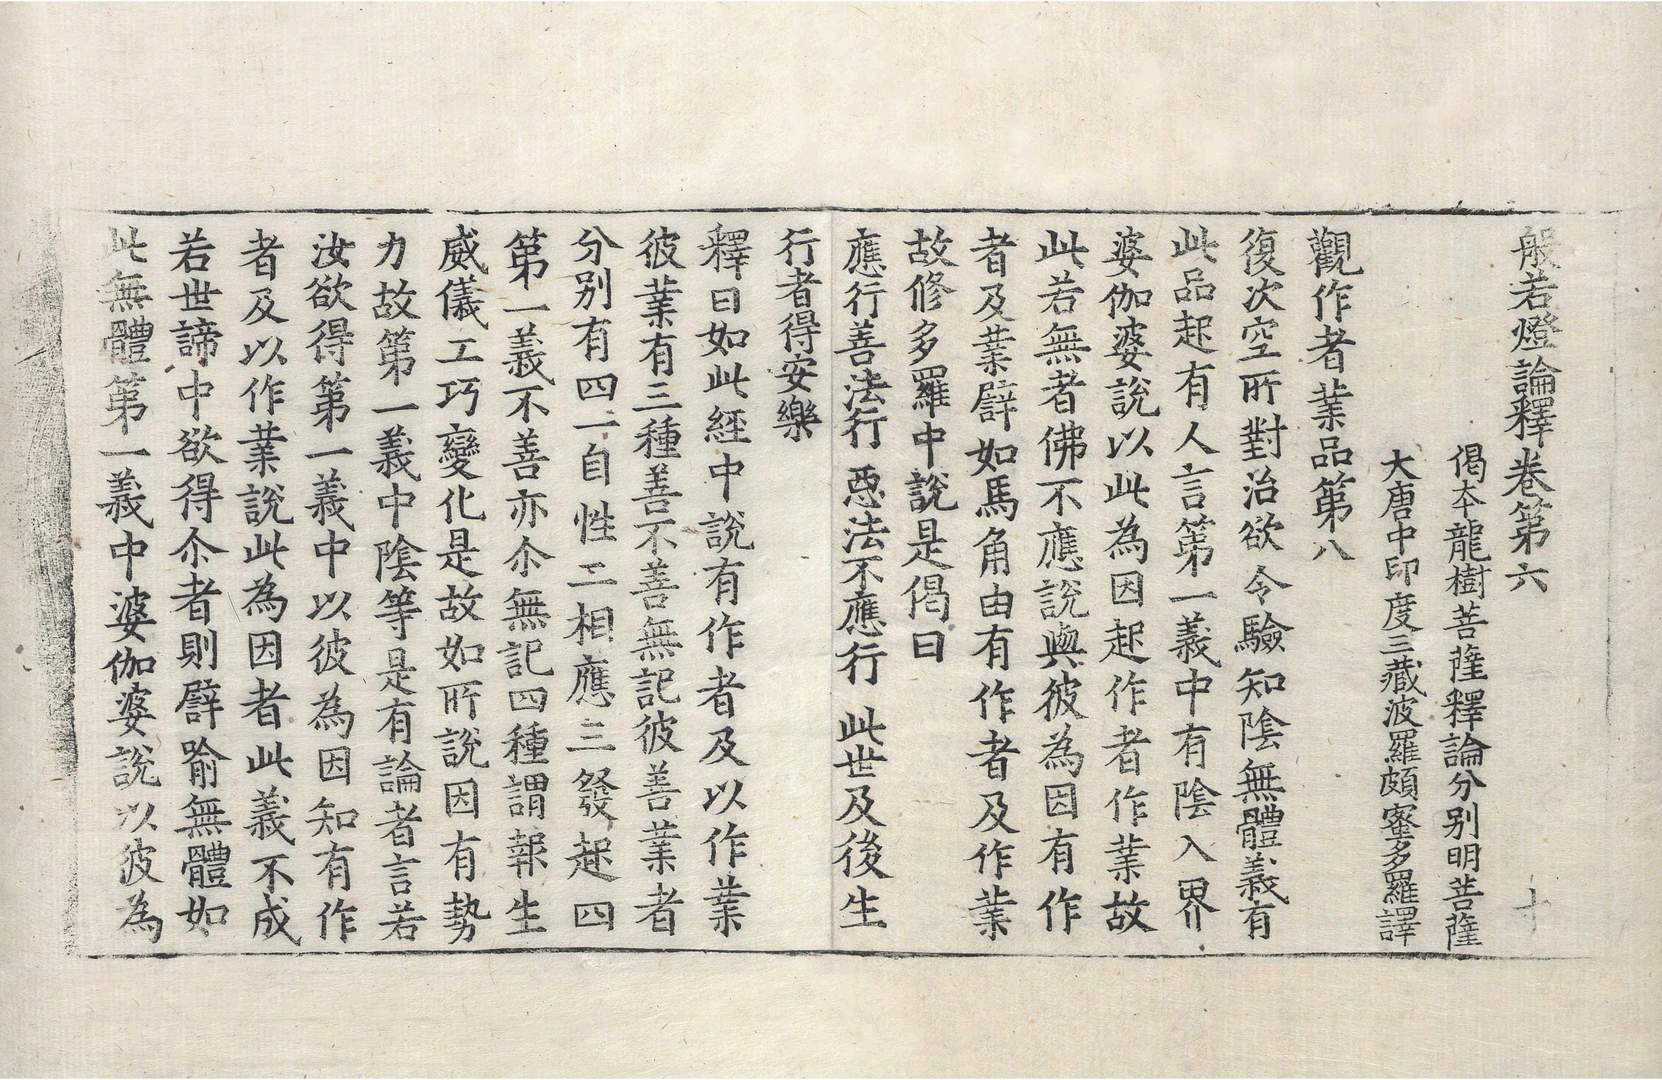 般若燈論釋卷第六 十
偈本龍樹菩薩釋論分別明菩薩
大唐中印度三藏波羅頗蜜多羅譯
觀作者業品第八
復次空所對治欲令驗知陰無體義有
此品起有人言第一義中有陰入界
婆伽婆說以此為因起作者作業故
此若無者佛不應說與彼為因有作
者及業譬如馬角由有作者及作業
故修多羅中說是偈曰
應行善法行 惡法不應行 此世及後生
行者得安樂
釋曰如此經中說有作者及以作業
彼業有三種善不善無記彼善業者
分別有四一自性二相應三發起四
第一義不善亦尒無記四種謂報生
威儀工巧變化是故如所說因有勢
力故第一義中陰等是有論者言若
汝欲得第一義中以彼為因知有作
者及以作業說此為因者此義不成
若世諦中欲得尒者則譬喻無體如
此無體第一義中婆伽婆說以彼為